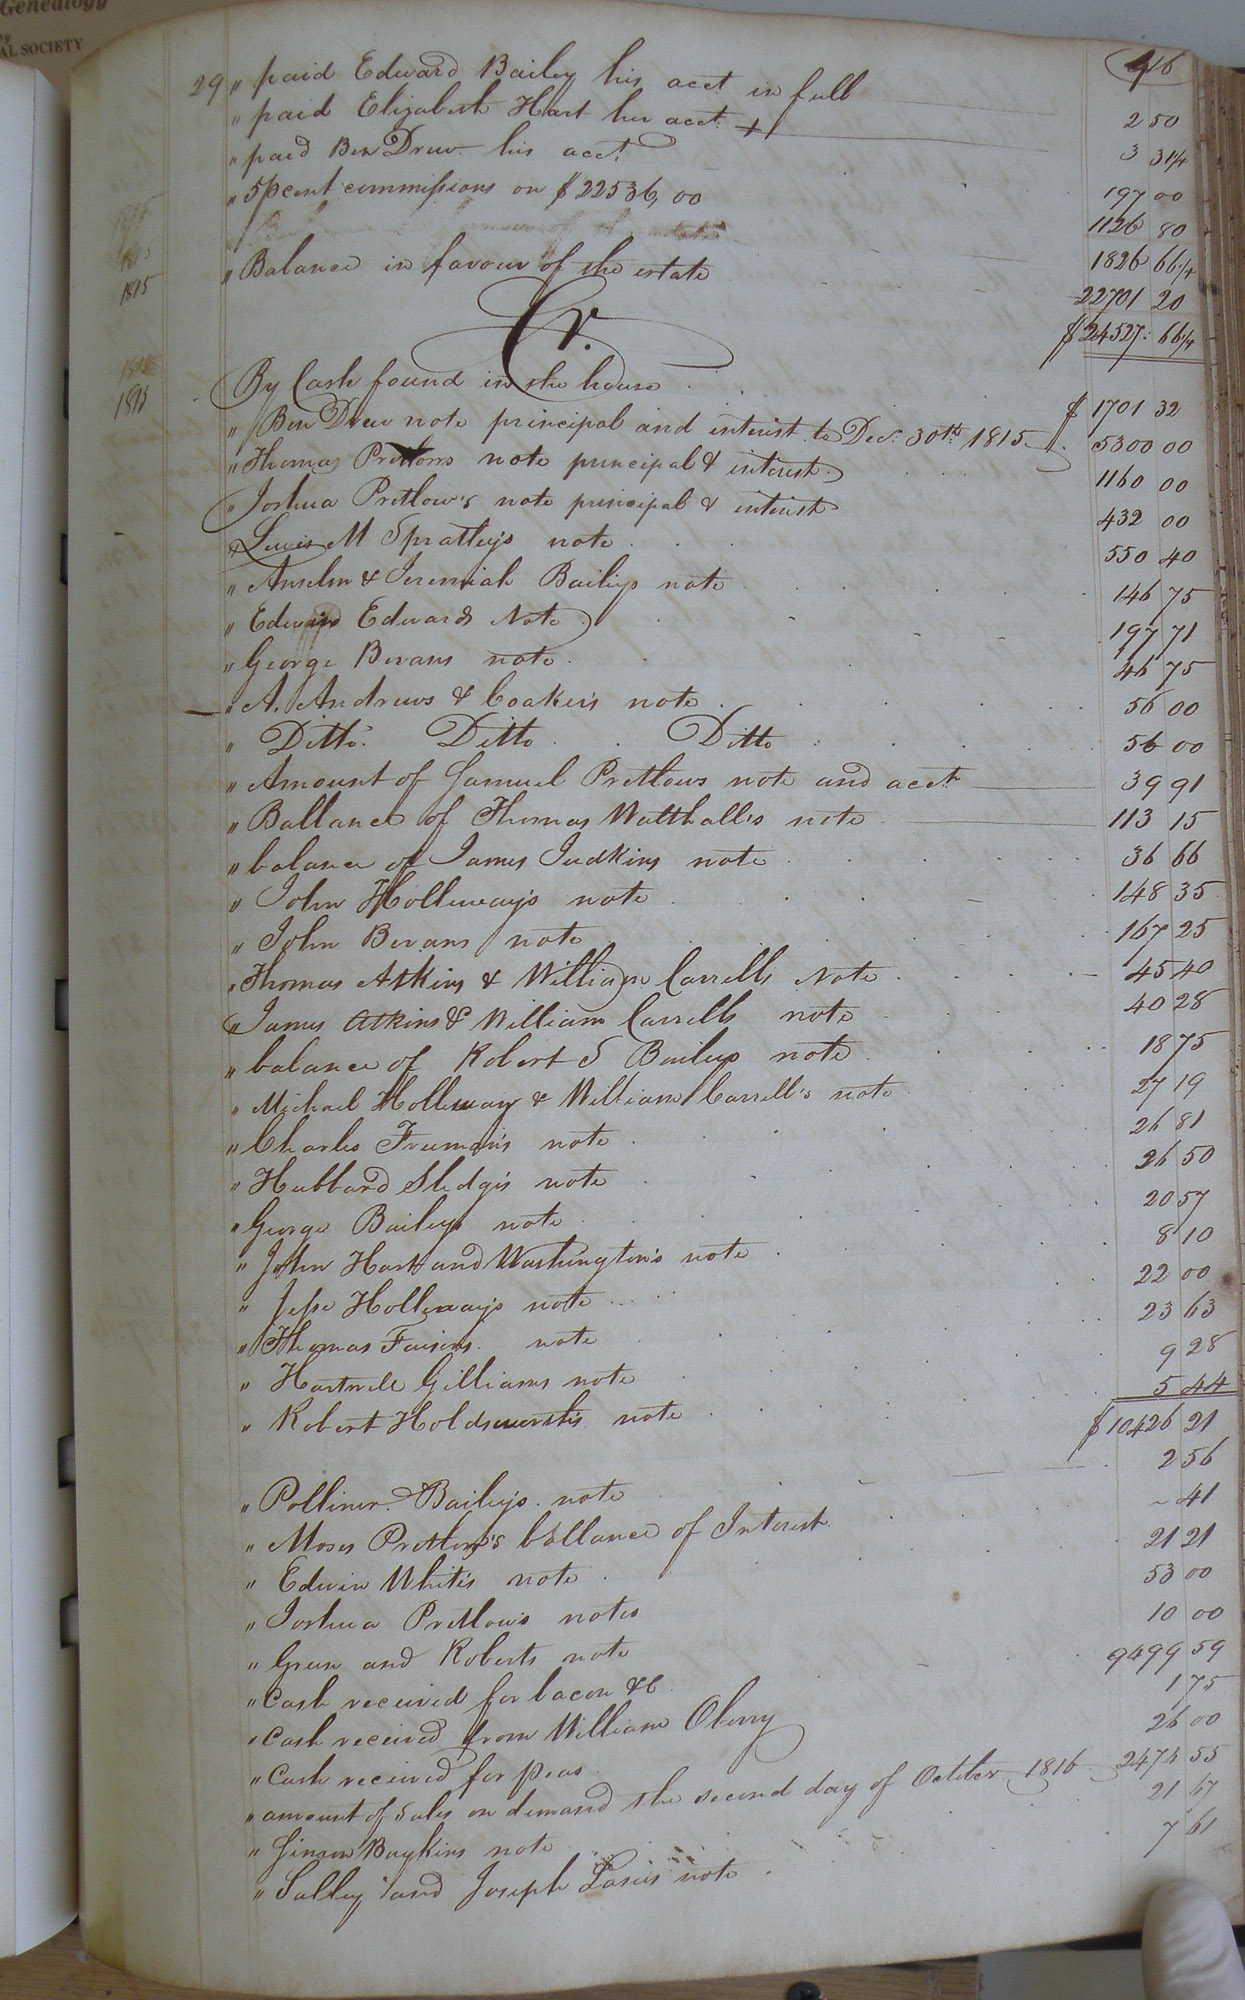 Genealogy
by
AL SOCIETY
416
29 " paid Edward Bailey his acct in full 2 50
" paid Elizabeth Hart her acct 3 31 1/4
" paid Ben Drew his acct 197 00
" 5 pcent commissions on $22536,00 1126 80
1826 66 1/4
1815 " Balance in favour of the estate 22701 20
$24527. 66 1/4
Cr.
1815 By Cash found in the house $ 1701 32
" Ben Drew note principal and interest to Dec. 30th 1815 5300 00
" Thomas Pretlows note principal & interest 1160 00
" Joshua Pretlow's note principal & interest 432 00
" Lewis M Spratley's note 550 40
" Anselm & Jeremiah Baileys note 146 75
" Edward Note 197 71
" George Bevans note 46 75
" A. Andrews & Coaker's note 56 00
" Ditto. Ditto Ditto 56 00
" Amount of Samuel Pretlows note and acct 39 91
" Ballance of Thomas Watthall's note 113 15
" balance of James Judkins note 36 66
" John Holleway's note 148 35
" John Bevans note 167 25
" Thomas Atkins & William Carrells Note 45 40
" James Atkins & William Carrells note 40 28
" balance of Robert S Baileys note 18 75
" Michael Holleway & William Carrell's note 27 19
" Charles Freeman's note 26 81
" Hubbard Sledge's note 26 50
" George Baileys note 20 57
" John Hart and Washington's note 8 10
" Jesse Holleway's note 22 00
" Thomas Faisons note 23 63
" Hartwell Gilliams note 9 28
" Robert Holdsworth's note 5 44
$ 10426 21
" Bailey's note 2 56
" Moses Pretlow's ballance of Interest 41
" Edwin White's note 21 21
" Joshua Pretlow's notes 53 00
" Green and Roberts note 10 00
" Cash received for bacon &c 9499 59
" Cash received from William Oberry 1 75
" Cash received for peas 26 00
" amount of Sales on demand the second day of October 1816 2474 55
" Simon Boykins note 21 67
" Salley and Joseph note 7 61